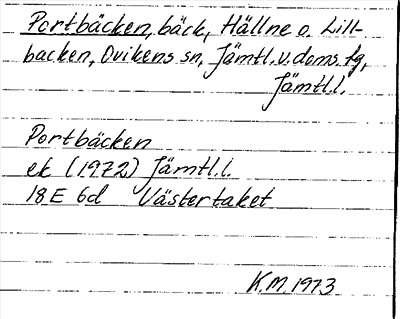 Portbäcken, bäck, Hällne o. Lill-
backen, Ovikens sn, Jämtl. v. doms. fg,
Jämtl.l.
Portbäcken
ek (1972) Jämtl.l.
18E 6d Västertaket
K.M. 1973